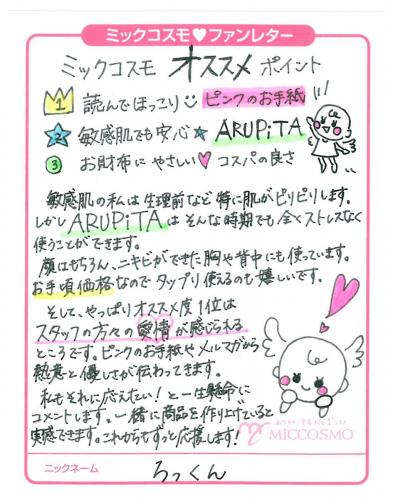 ミックコスモ♥ファンレター
ミックコスモ オススメ ポイント
1 読んでほっこり ピンクのお手紙
2 敏感肌でも安心 ★ ARUPiTA
3 お財布にやさしい♥ コスパの良さ
敏感肌の私は生理前など特に肌がピリピリします。
しかしARUPiTAはそんな時期でも全くストレスなく
使うことができます。
顔はもちろん、ニキビができた胸や背中にも使っています。
お手頃価格なのでタップリ使えるのも嬉しいです。
そして、やっぱりオススメ度1位は
スタッフの方々の愛情が感じられる
ところです。ピンクのお手紙やメルマガから
熱意と優しさが伝わってきます。
私もそれに応えたい!と一生懸命に
コメントします。一緒に商品を作り上げていると
実感できます。これからもずっと応援します!
MICCOSMO
ニックネーム
ろっくん